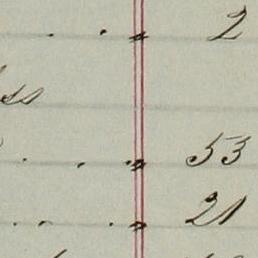 . . " 2
ss
. . . " 53
. . . . " 21